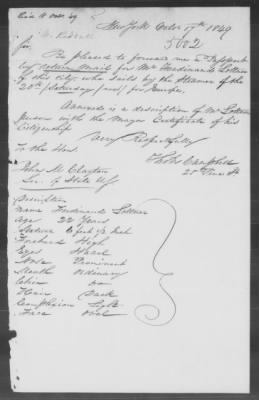 New York Octr 17th 1849
5082
Sir,
Be pleased to forward me a Passport
by return Mail for Mr Ferdinand
of this City, who sails by the Steamer of the
20th (Saturday next) for Europe.
Annexed is a description of Mr
person with the Mayor Certificate of his
Citizenship
Very Respectfully
To the Hon.
John M Clayton
Sec. of State US
25 Pine St
Description
Name Ferdinand
Age 22 Years
Stature 6 feet 1/2 Inch
Forehead High
Eyes Hazel
Nose Prominent
Mouth Ordinary
Chin Do
Hair Dark
Complexion Light
Face Oval